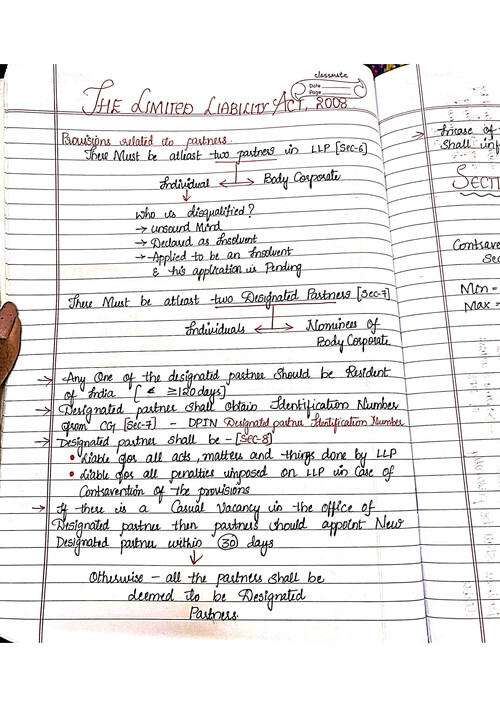 classmate
Date
Page
THE LIMITED LIABILITY ACT, 2008
Provisions related to partners.
There Must be atleast two partners in LLP [Sec-6]
Individual ← → Body Corporate
Who is disqualified?
→ Unsound Mind
→ Declared as Insolvent
→ Applied to be an Insolvent
& his application is Pending
There Must be atleast two Designated Partners [Sec-7]
Individuals ← → Nominees of
Body Corporate
→ Any One of the designated partner should be Resident
of India [ ≥120 days]
→ Designated partner shall obtain Identification Number
from CG [Sec-7] - DPIN Designated partner Identification Number
→ Designated partner shall be - [Sec-8]
• Liable for all acts, matters and things done by LLP
• Liable for all penalties imposed on LLP in Case of
Contravention of the provisions
→ If there is a Casual Vacancy in the office of
Designated partner then partners should appoint New
Designated partner within 30 days
Otherwise - all the partners shall be
deemed to be Designated
Partners.
→ of
Shall
SECTI
Contrave
Sec
Min =
Max =